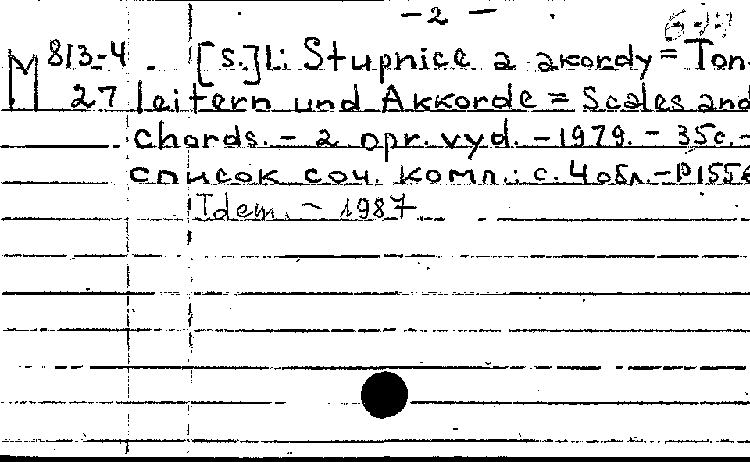 - 2 -
M 813-4 [s.]1: Stupnice a akordy = Ton-
27 leitern und Akkorde = Scales and
chords. - 2. opr. vyd. - 1979. - 35c. -
список соч. комп.: с. 4 обл. - P1556
Idem. - 1987